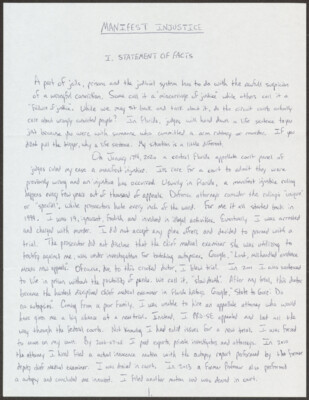 MANIFEST INJUSTICE
I. STATEMENT OF FACTS
A part of jails, prisons and the judicial system has to do with the awful suspicion
of a wrongful conviction. Some call it a "miscarriage of justice" while others call it a
"failure of justice". While we may sit back and talk about it, do the courts actually
care about wrongly convicted people? In Florida, judges will hand down a life sentence to you
just because you were with someone who committed a armed robbery or murder. If you
didn't pull the trigger, why a life sentence. My situation is a little different.
On January 17th, 2020 a central Florida appellate court panel of
judges called my case a manifest injustice. It's rare for a court to admit they were
previously wrong and an injustice has occurred. Usually in Florida, a manifest injustice ruling
happens every few years out of thousands of appeals. Defense attorneys consider the rulings "unique"
or "special", while prosecutors hate every inch of the word. For me it all started back in
1998. I was 19, ignorant, foolish and involved in illegal activities. Eventually, I was arrested
and charged with murder. I did not accept any plea offers and decided to proceed with a
trial. The prosecutor did not disclose that the chief medical examiner she was utilizing to
testify against me, was under investigation for botching autopsies. Google,
means no appeal. Obviously, due to this crooked doctor, I lost trial. In 2001 I was sentenced
to life in prison without the possibility of parole. We call it, "slow death". After my trial, this doctor
became the hardest disciplined chief medical examiner in Florida history. Google,
his autopsies. Coming from a poor family, I was unable to hire an appellate attorney who would
have give me a big chance at a new trial. Instead, I PRO-SE appealed and lost all the
way through the federal courts. Not knowing I had valid issues for a new trial, I was forced
to move on my own. By 2010 I had paid experts, private investigators and attorneys. In 2011
the attorney I hired filed a actual innocence motion with the autopsy report performed by the former
deputy chief medical examiner. I was denied in court. In 2013 a former Professor also performed
a autopsy and concluded me innocent. I filed another motion and was denied in court.
1